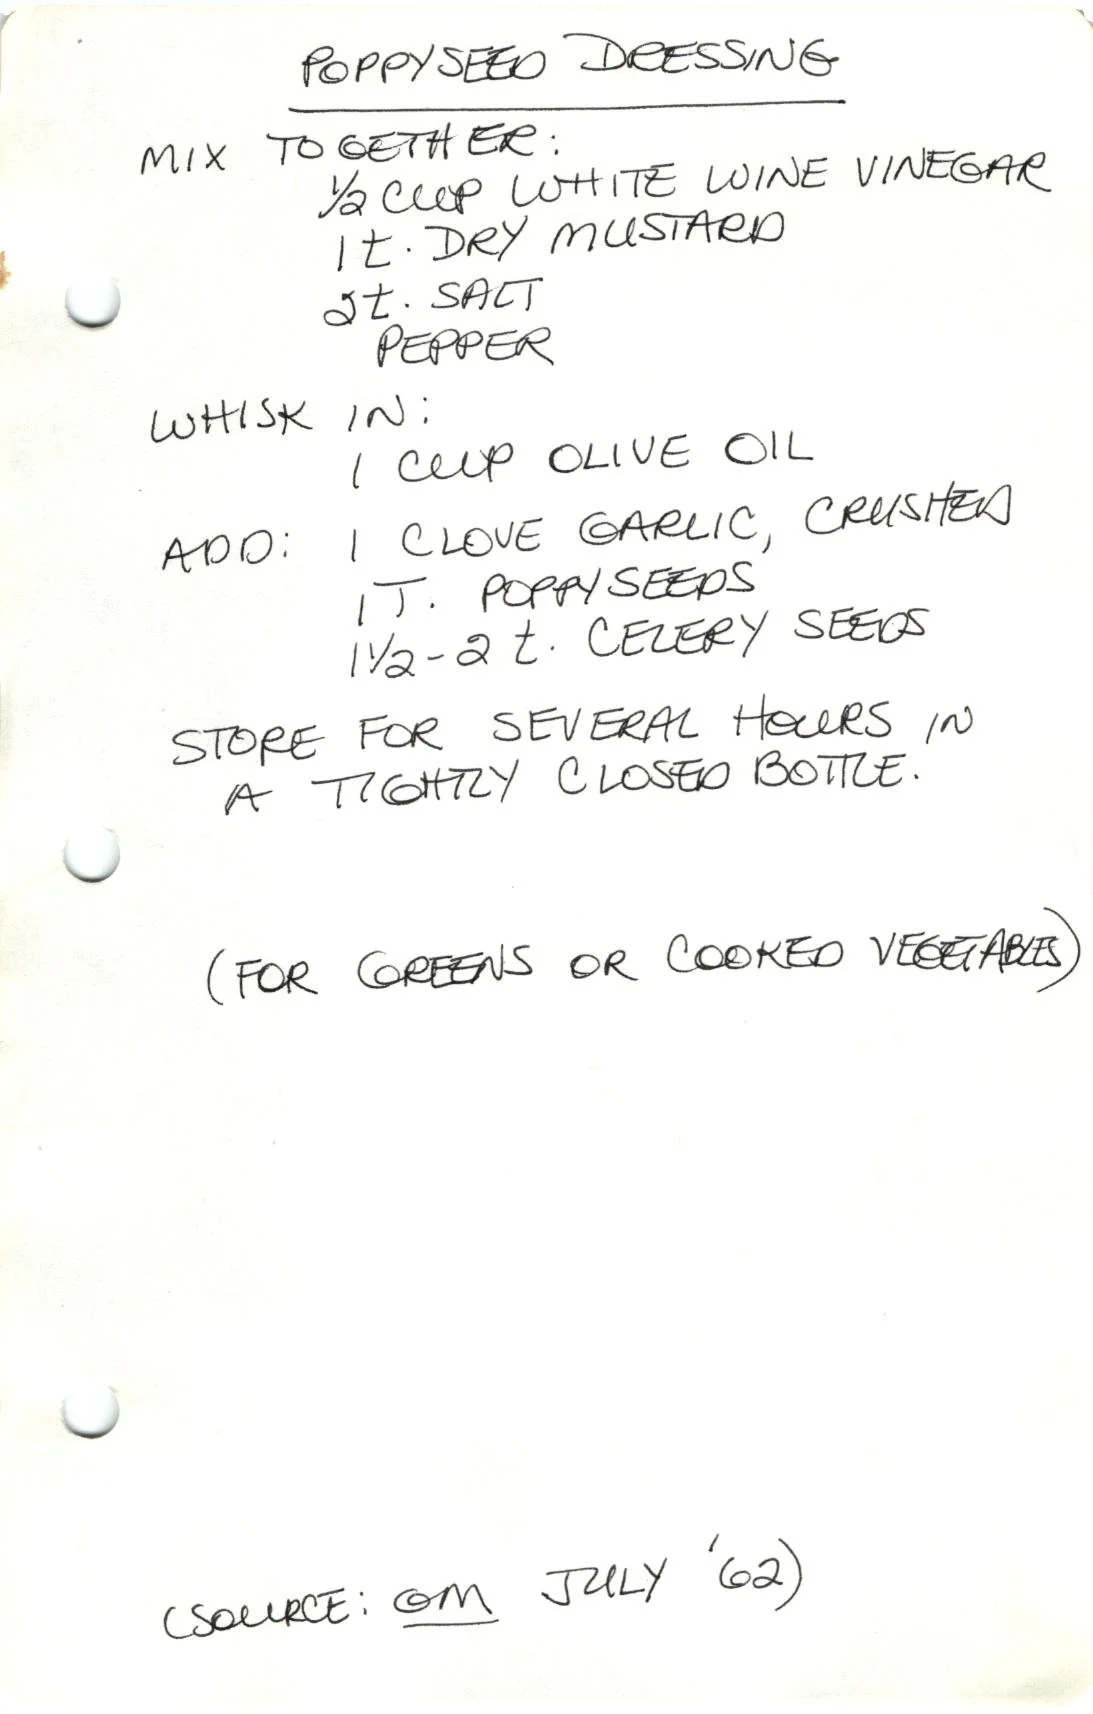 POPPYSEED DRESSING
MIX TOGETHER:
1/2 CUP WHITE WINE VINEGAR
1 t. DRY MUSTARD
2 t. SALT
PEPPER
WHISK IN:
1 CUP OLIVE OIL
ADD: 1 CLOVE GARLIC, CRUSHED
1 T. POPPYSEEDS
1 1/2 - 2 t. CELERY SEEDS
STORE FOR SEVERAL HOURS IN
A TIGHTLY CLOSED BOTTLE.
(FOR GREENS OR COOKED VEGETABLES)
(SOURCE: GM JULY '62)